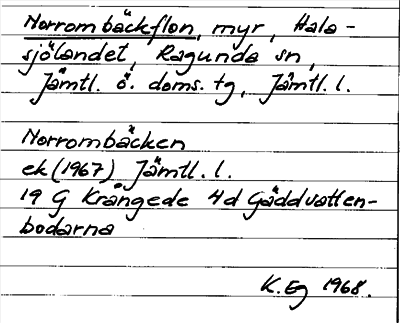 Norrombäckflon, myr, Hala-
sjölandet, Ragunda sn,
Jämtl. ö. doms. tg, Jämtl. l.
Norrombäcken
ek (1967) Jämtl. l.
19 G Krångede 4d Gäddvatten-
bodarna
K. Eg 1968.